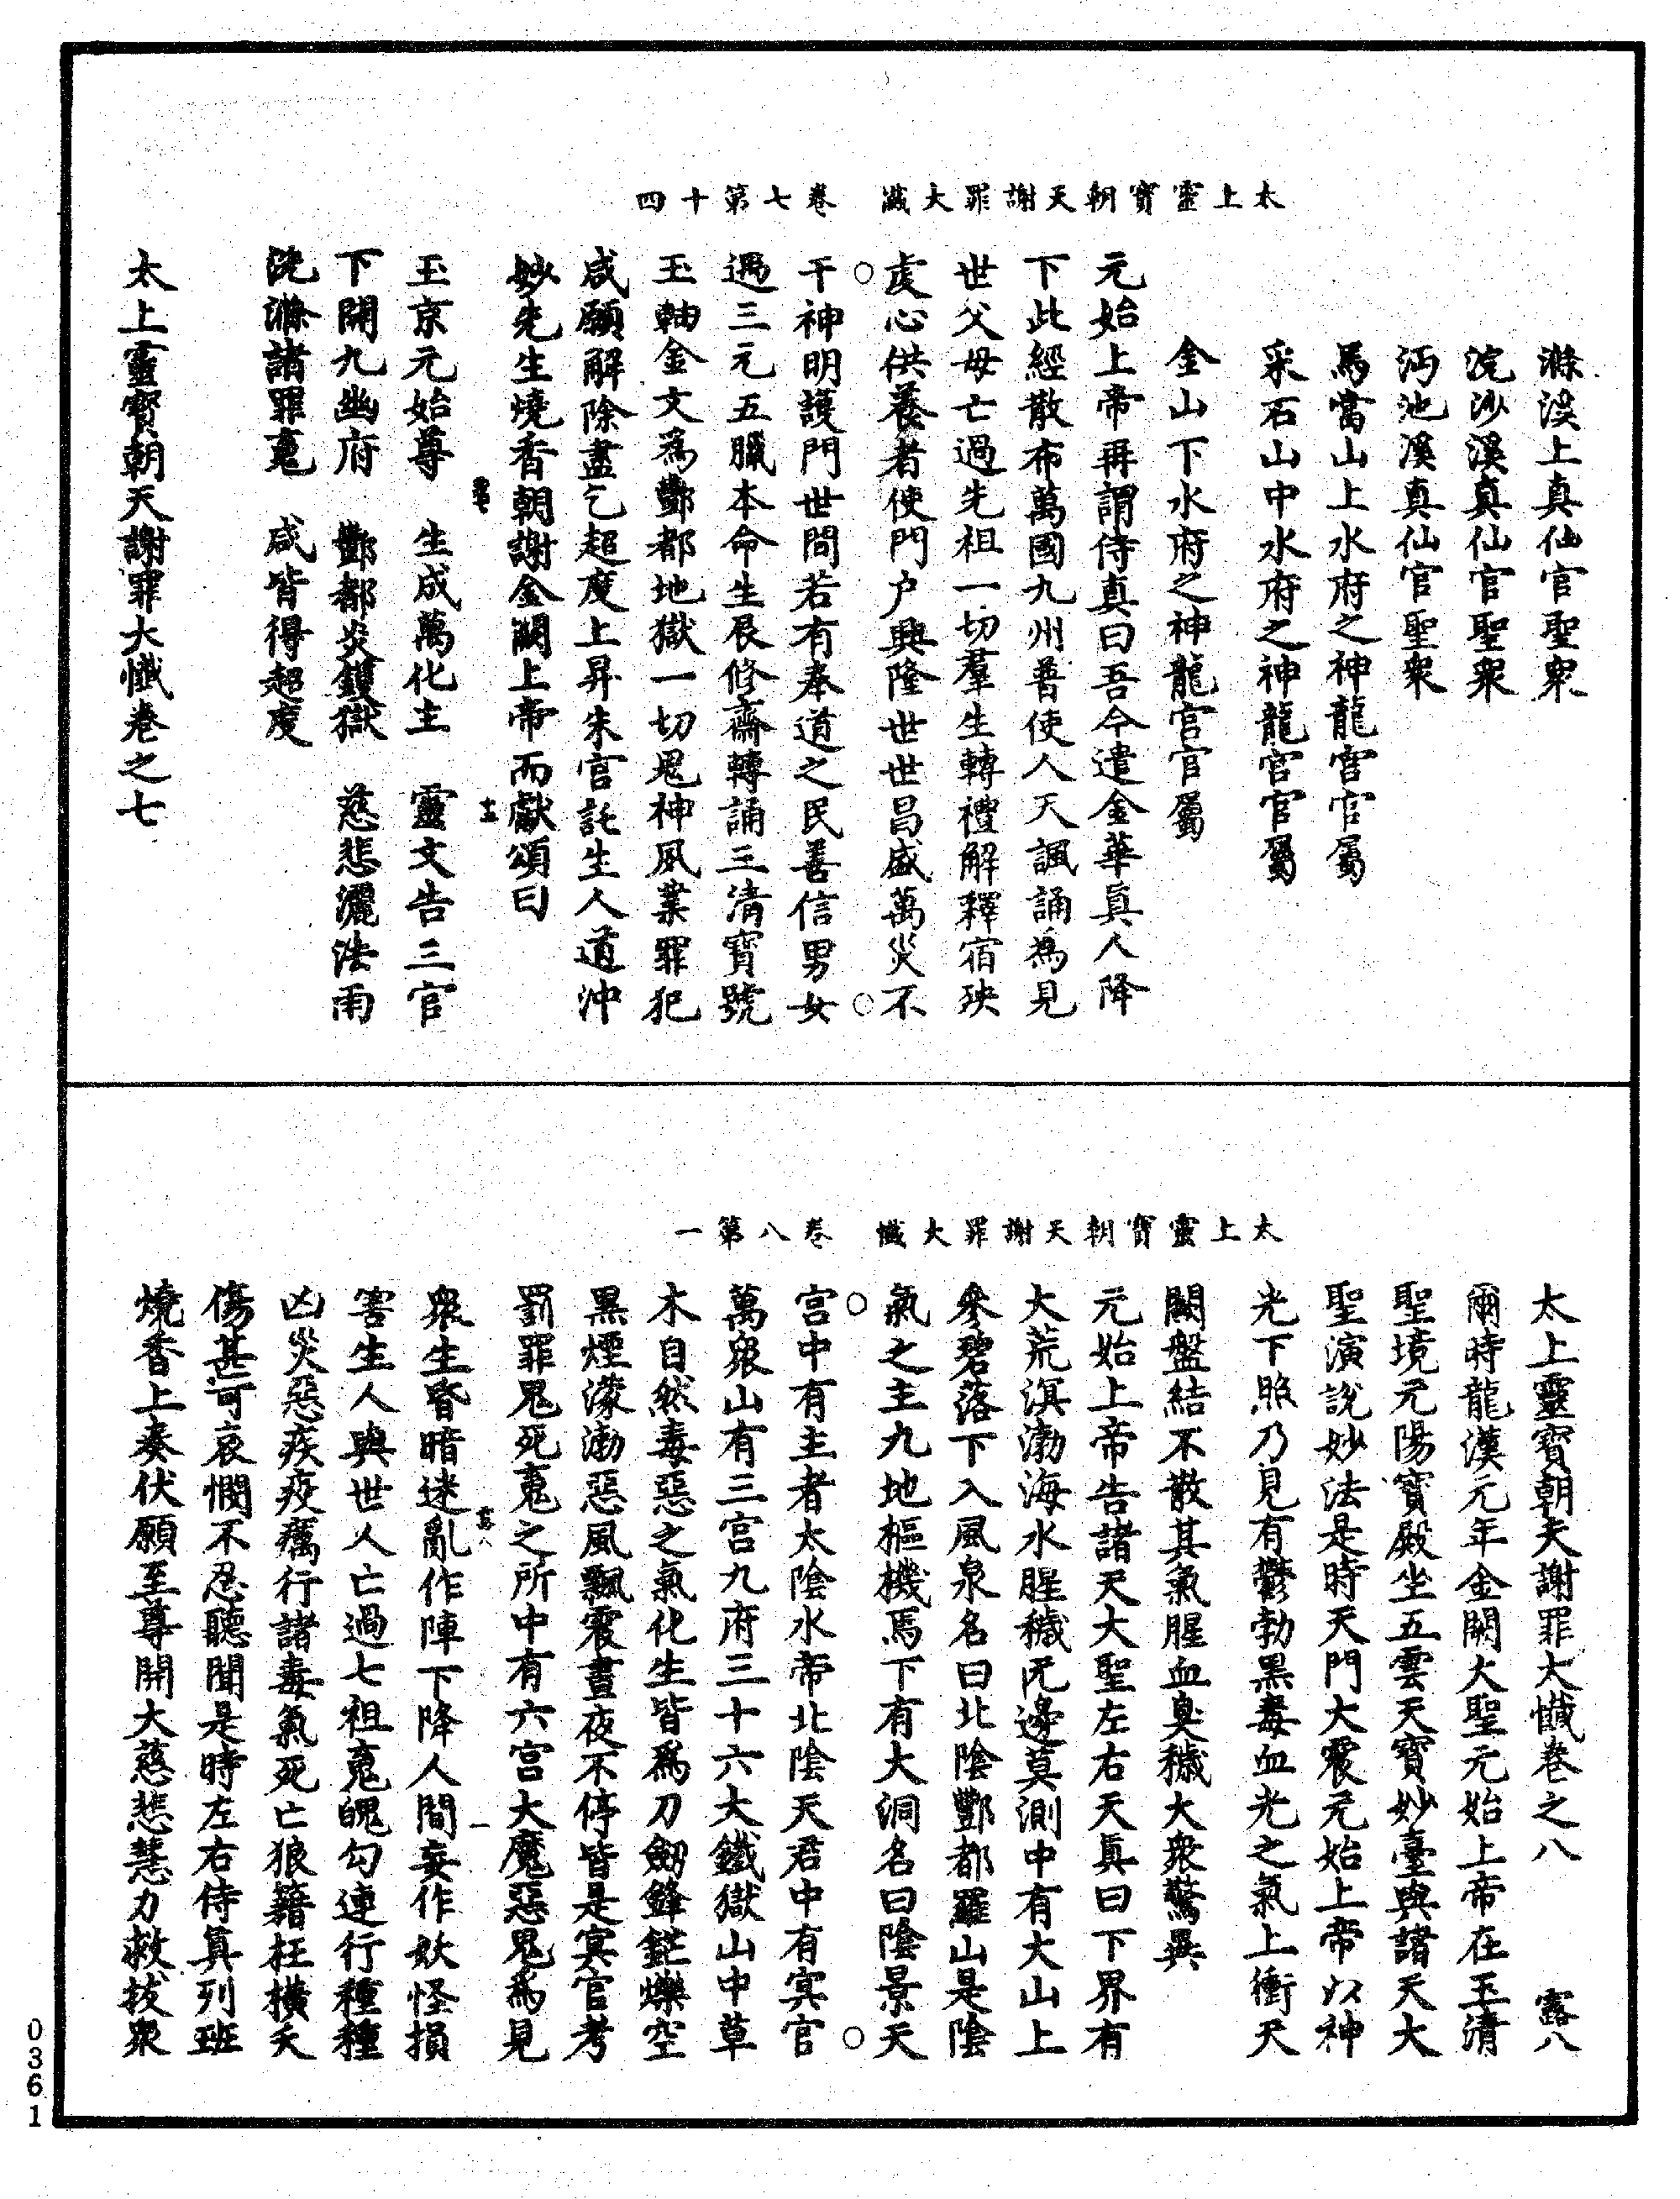 太上靈寶朝天謝罪大懺　卷七第十四
滌溪上真仙官聖衆
浣沙溪真仙官聖衆
沔池溪真仙官聖衆
馬當山上水府之神龍宫官屬
采石山中水府之神龍宫官屬
金山下水府之神龍宫官屬
元始上帝再謂侍真曰吾今遣金華真人降
下此經散布萬國九州普使人天諷誦爲見
世父母亡過先祖一切羣生轉禮解釋宿殃
虔心供養者使門户興隆世世昌盛萬災不
干神明護門世間若有奉道之民善信男女
遇三元五臘本命生辰修齋轉誦三清寶號
玉軸金文爲酆都地獄一切鬼神夙業罪犯
咸願解除盡乞超度上昇朱宫託生人道沖
妙先生燒香朝謝金闕上帝而獻頌曰
玉京元始尊　生成萬化主　靈文告三官
下開九幽府　酆都炎鑊獄　慈悲灑法雨
洗滌諸罪䰟　咸皆得超度
太上靈寶朝天謝罪大懺卷之七
太上靈寶朝天謝罪大懺　卷八第一
太上靈寶朝天謝罪大懺卷之八　露八
爾時龍漢元年金闕大聖元始上帝在玉清
聖境元陽寶殿坐五雲天寶妙臺與諸天大
聖演說妙法是時天門大震元始上帝以神
光下照乃見有鬱勃黑毒血光之氣上衝天
闕盤結不散其氣腥血臭穢大衆驚異
元始上帝告諸天大聖左右天真曰下界有
大荒溟渤海水腥穢旡邊莫測中有大山上
參碧落下入風泉名曰北陰酆都羅山是陰
氣之主九地樞機焉下有大洞名曰陰景天
宫中有主者太陰水帝北陰天君中有冥官
萬衆山有三宫九府三十六大鐵獄山中草
木自然毒惡之氣化生皆爲刀劒鋒鋩爍空
黑煙濛渤惡風飄震晝夜不停皆是冥官考
罰罪鬼死䰟之所中有六宫大魔惡鬼爲見
衆生昏暗迷亂作陣下降人間妄作妖怪損
害生人與世人亡過七祖䰟魄勾連行種種
凶災惡疾疫癘行諸毒氣死亡狼籍枉橫夭
傷甚可哀憫不忍聽聞是時左右侍真列班
燒香上奏伏願至尊開大慈悲慧力救拔衆
0361